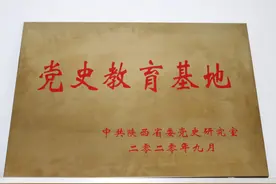 党史教育基地
中共陕西省委党史研究室
二零二零年九月